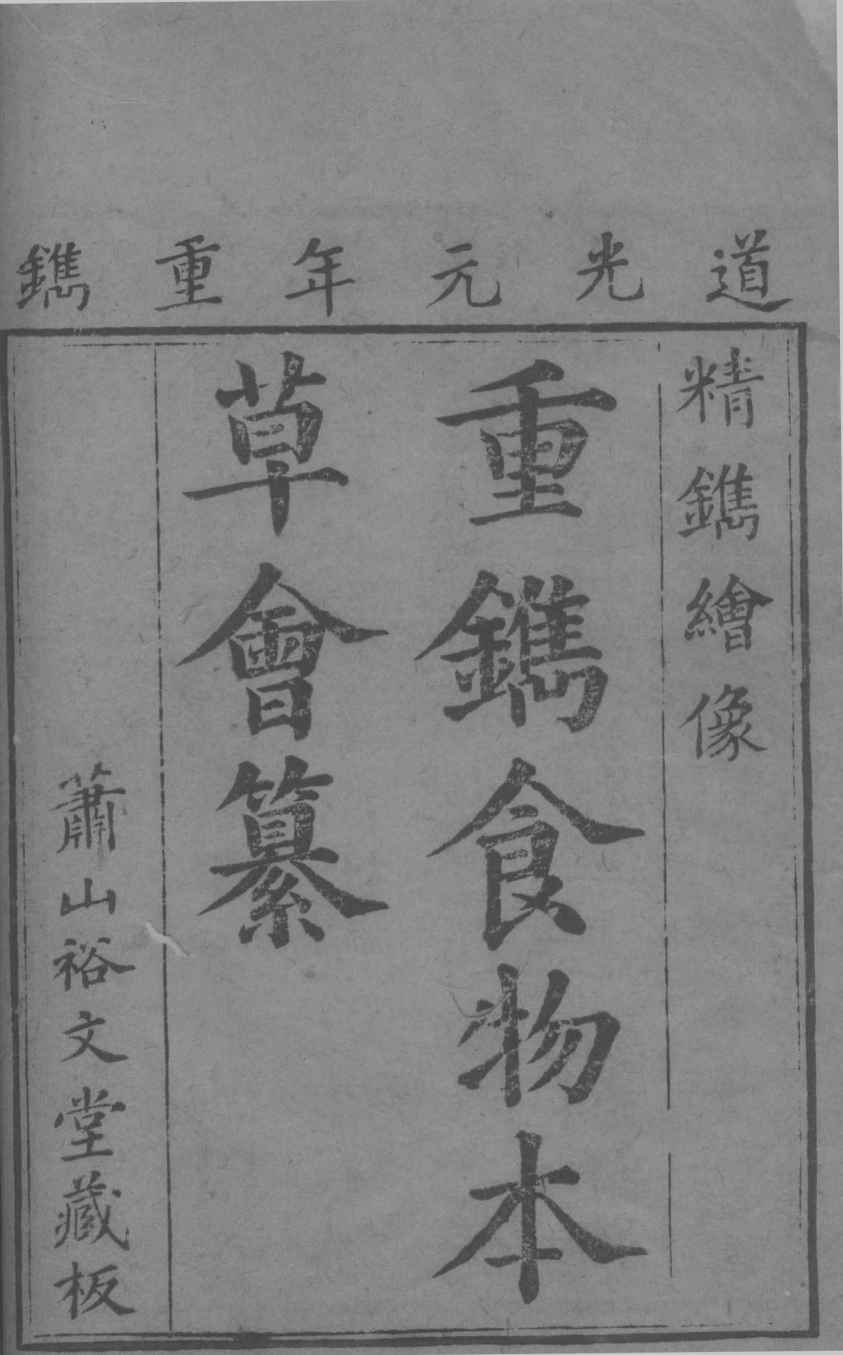 道光元年重鐫
精鐫繪像
重鐫食物本
草會纂
蕭山裕文堂藏板